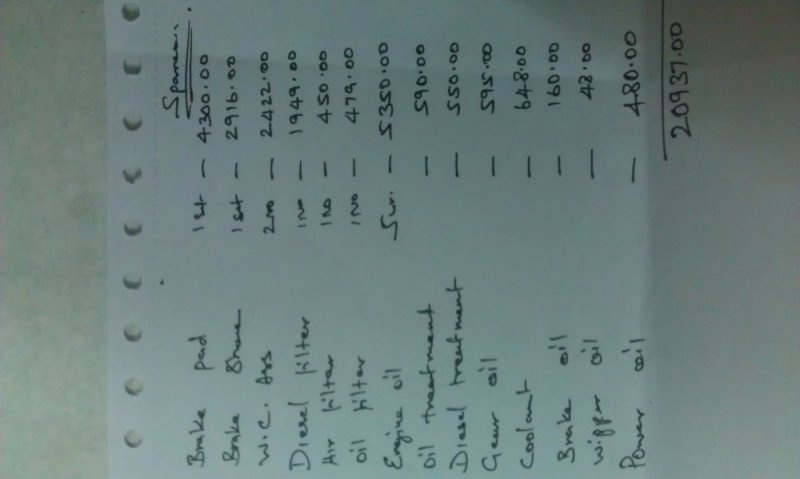 Spares..
Brake pad 1set — 4300.00
Brake Shoe 1set — 2916.00
W.C. Ass 2no — 2422.00
Diesel filter 1no — 1949.00
Air filter 1no — 450.00
Oil filter 1no — 479.00
Engine oil — 5350.00
Oil treetment — 590.00
Diesel treetment — 550.00
Gear oil — 595.00
Coolant — 648.00
Brake oil — 160.00
Wipper oil — 48.00
Power oil — 480.00
20937.00